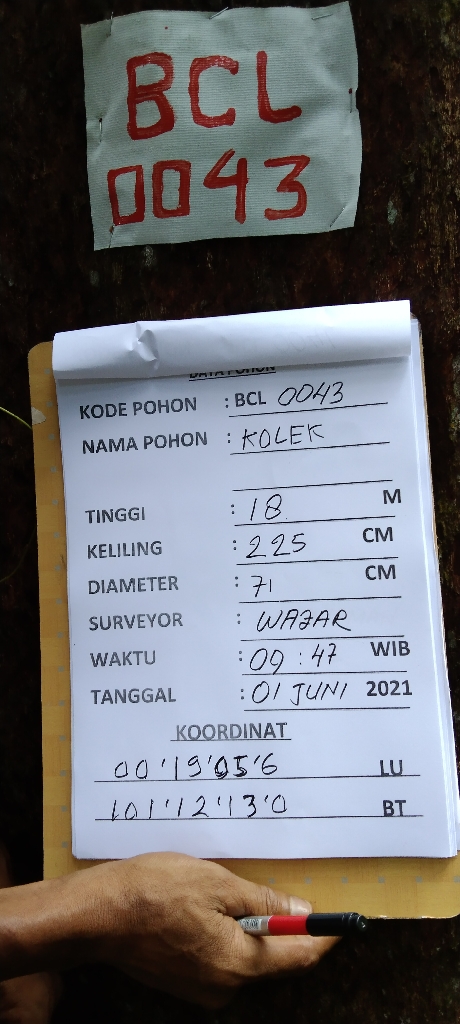 BCL
0043
DATA POHON
KODE POHON : BCL 0043
NAMA POHON : KOLEK
TINGGI : 18 M
KELILING : 225 CM
DIAMETER : 71 CM
SURVEYOR : WAJAR
WAKTU : 09:47 WIB
TANGGAL : 01 JUNI 2021
KOORDINAT
00'19'05'6 LU
101'12'13'0 BT